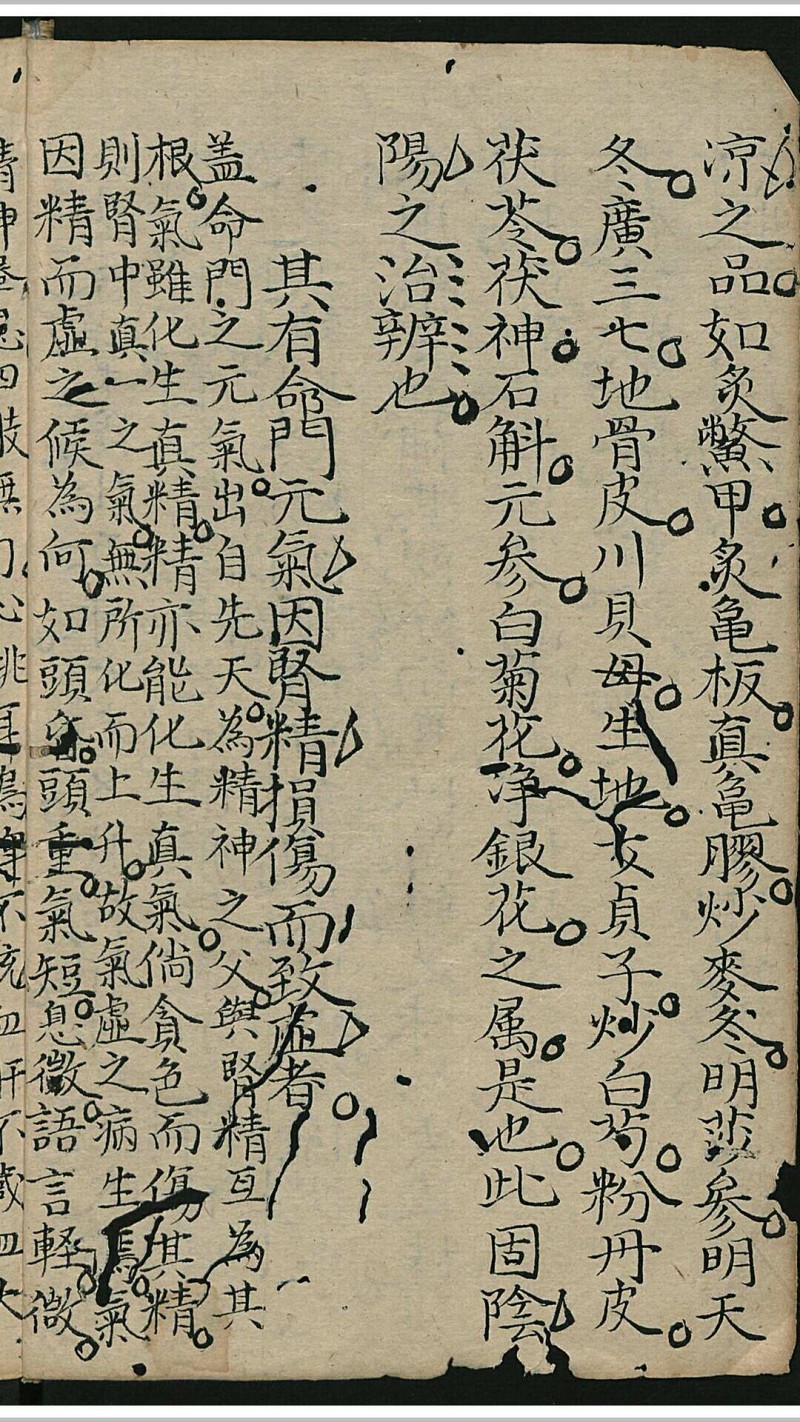 涼之品如炙鱉甲炙龜板真龜膠炒麥冬明參明天
冬廣三七地骨皮川貝母生地女貞子炒白芍粉丹皮
茯苓茯神石斛元参白菊花淨銀花之属是也此固陰
陽之治辦也
其有命門元氣因腎精損傷而致虛者
盖命門之元氣出自先天為精神之父與腎精互為其
根氣雖化生真精精亦能化生真氣倘貪色而傷其精
則腎中真一之氣無所化而上升故氣虛之病生焉氣
因精而虛之候為何如頭頭重氣短息微語言軽微
四肢無力心跳耳鳴不血肝不藏血大